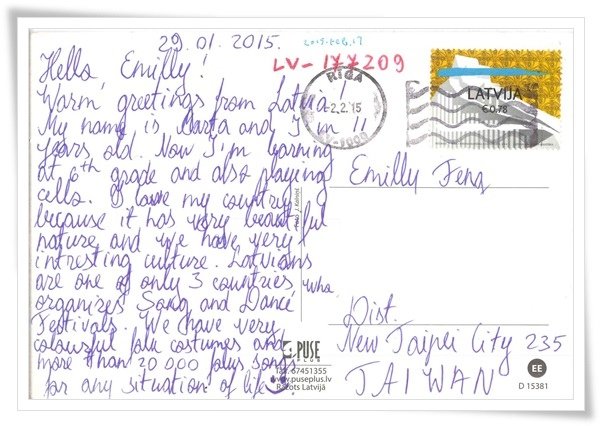 29.01.2015.
2015.Feb.17
LV-177209
Hello, Emilly!
Warm greetings from Latvia
My name is Marta and I'm 11
years old. Now I'm learning
at 6th grade and also playing
cello. I love my country
because it has very beautiful
nature and we have very
intresting culture. Latvians
are one of only 3 countries who
organizes Song and Dance
Festivals. We have very
colourful folk costumes and
more than 20 000 folks songs
for any situation of life :)
RIGA
-2.2.15
LV-1000
LATVIJA
€0.78
Emilly Feng
Dist.
New Taipei City 235
TAIWAN
PUSE
PLUS
Tālr. 67451355
www.puseplus.lv
Ražots Latvijā
EE
D 15381